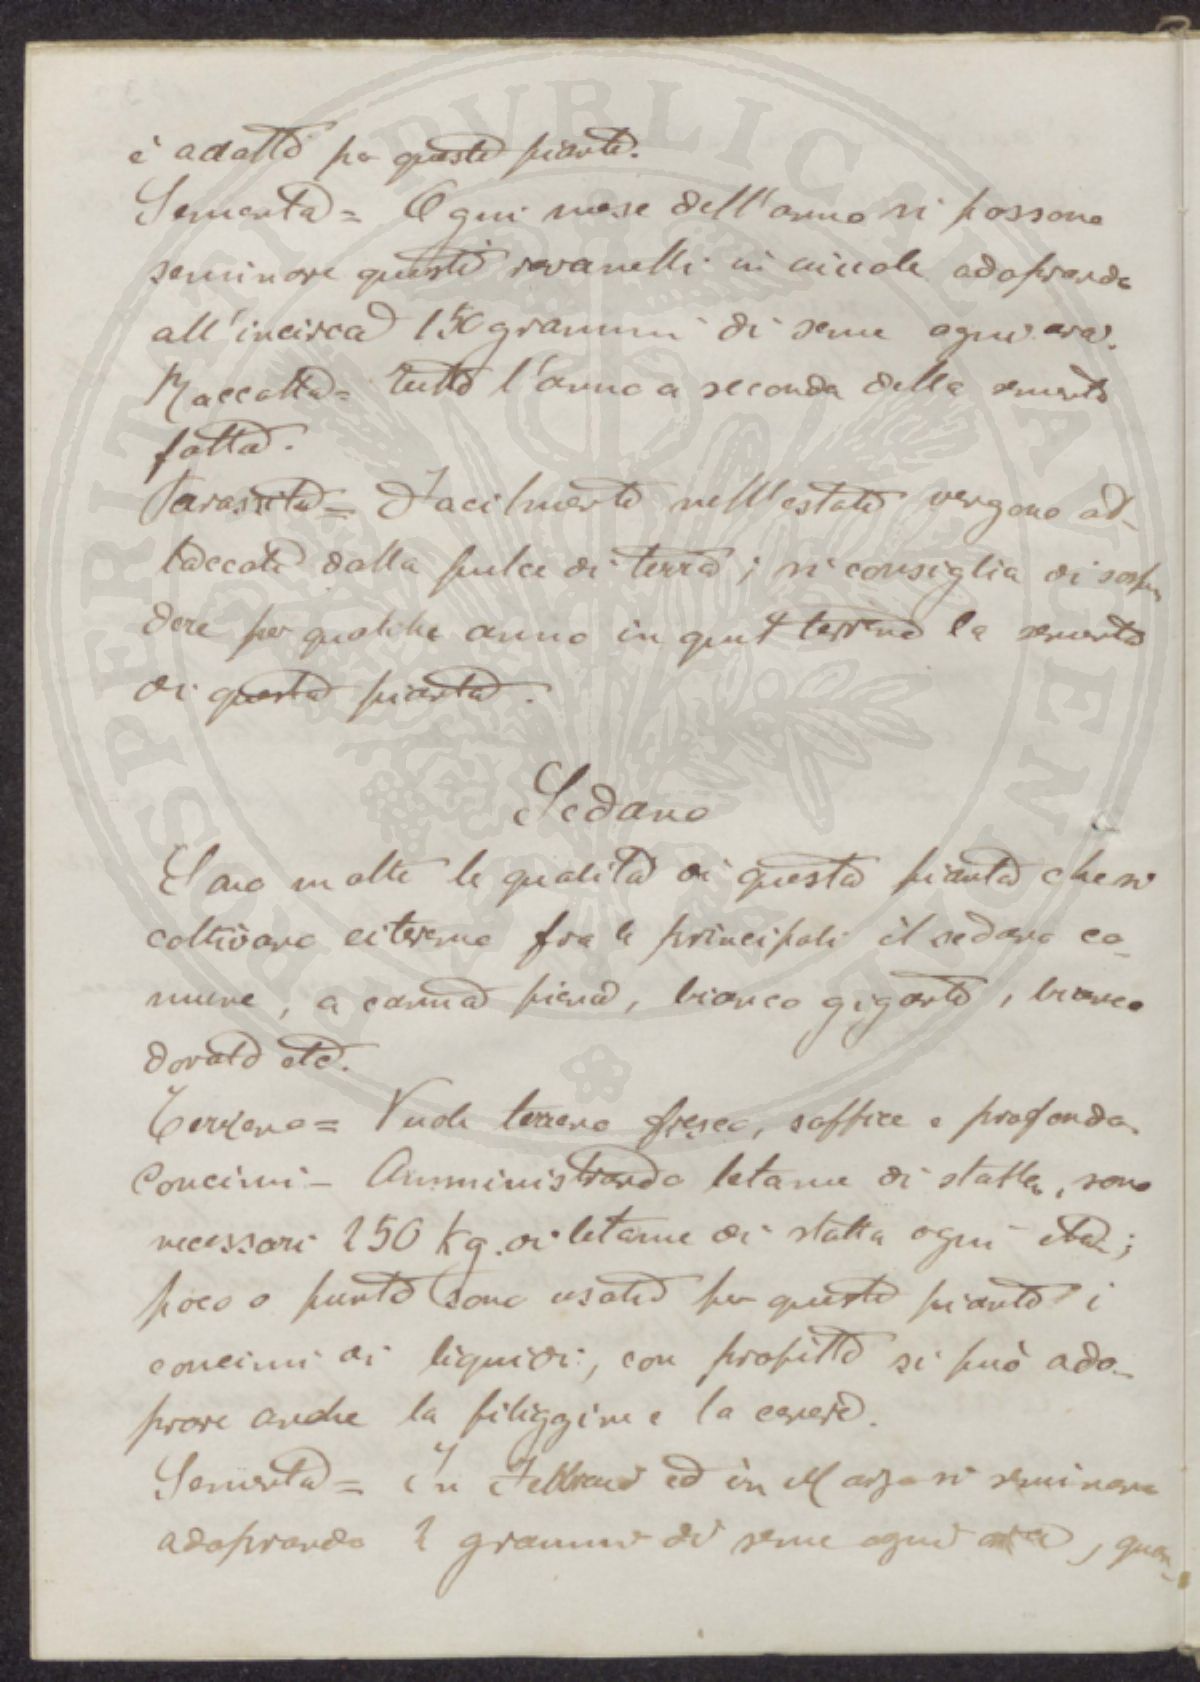 è adatto per queste piante.
Sementa = Ogni mese dell'anno si possono
seminare questi ravanelli in aiuole adoprando
all'incirca 150 grammi di seme ogni ara.
Raccolta = tutto l'anno a seconda della sementa
fatta.
Parassita = Facilmente nell'estate vengono at-
taccate dalla pulce di terra; si consiglia di sospen
dere per qualche anno in quel terreno la sementa
di questa pianta.
Sedano
Sono molte le qualità di questa pianta che si
coltivano citeremo fra le principali il sedano co-
mune, a canna piena, bianco gigante, bianco
dorato etc.
Terreno = Vuole terreno fresco, soffice e profondo.
Concimi - Amministrando letame di stalla, sono
necessari 250 Kg. di letame di stalla ogni ;
poco o punto sono usati per queste piante i
concimi di liquidi, con profitto si può ado-
prare anche la filiggine e la cenere.
Sementa = In Febbraio ed in Marzo si seminano
adoprando 2 grammi di seme ogni , quan-
PROSPERITATI PVBLICAE AVGENDAE